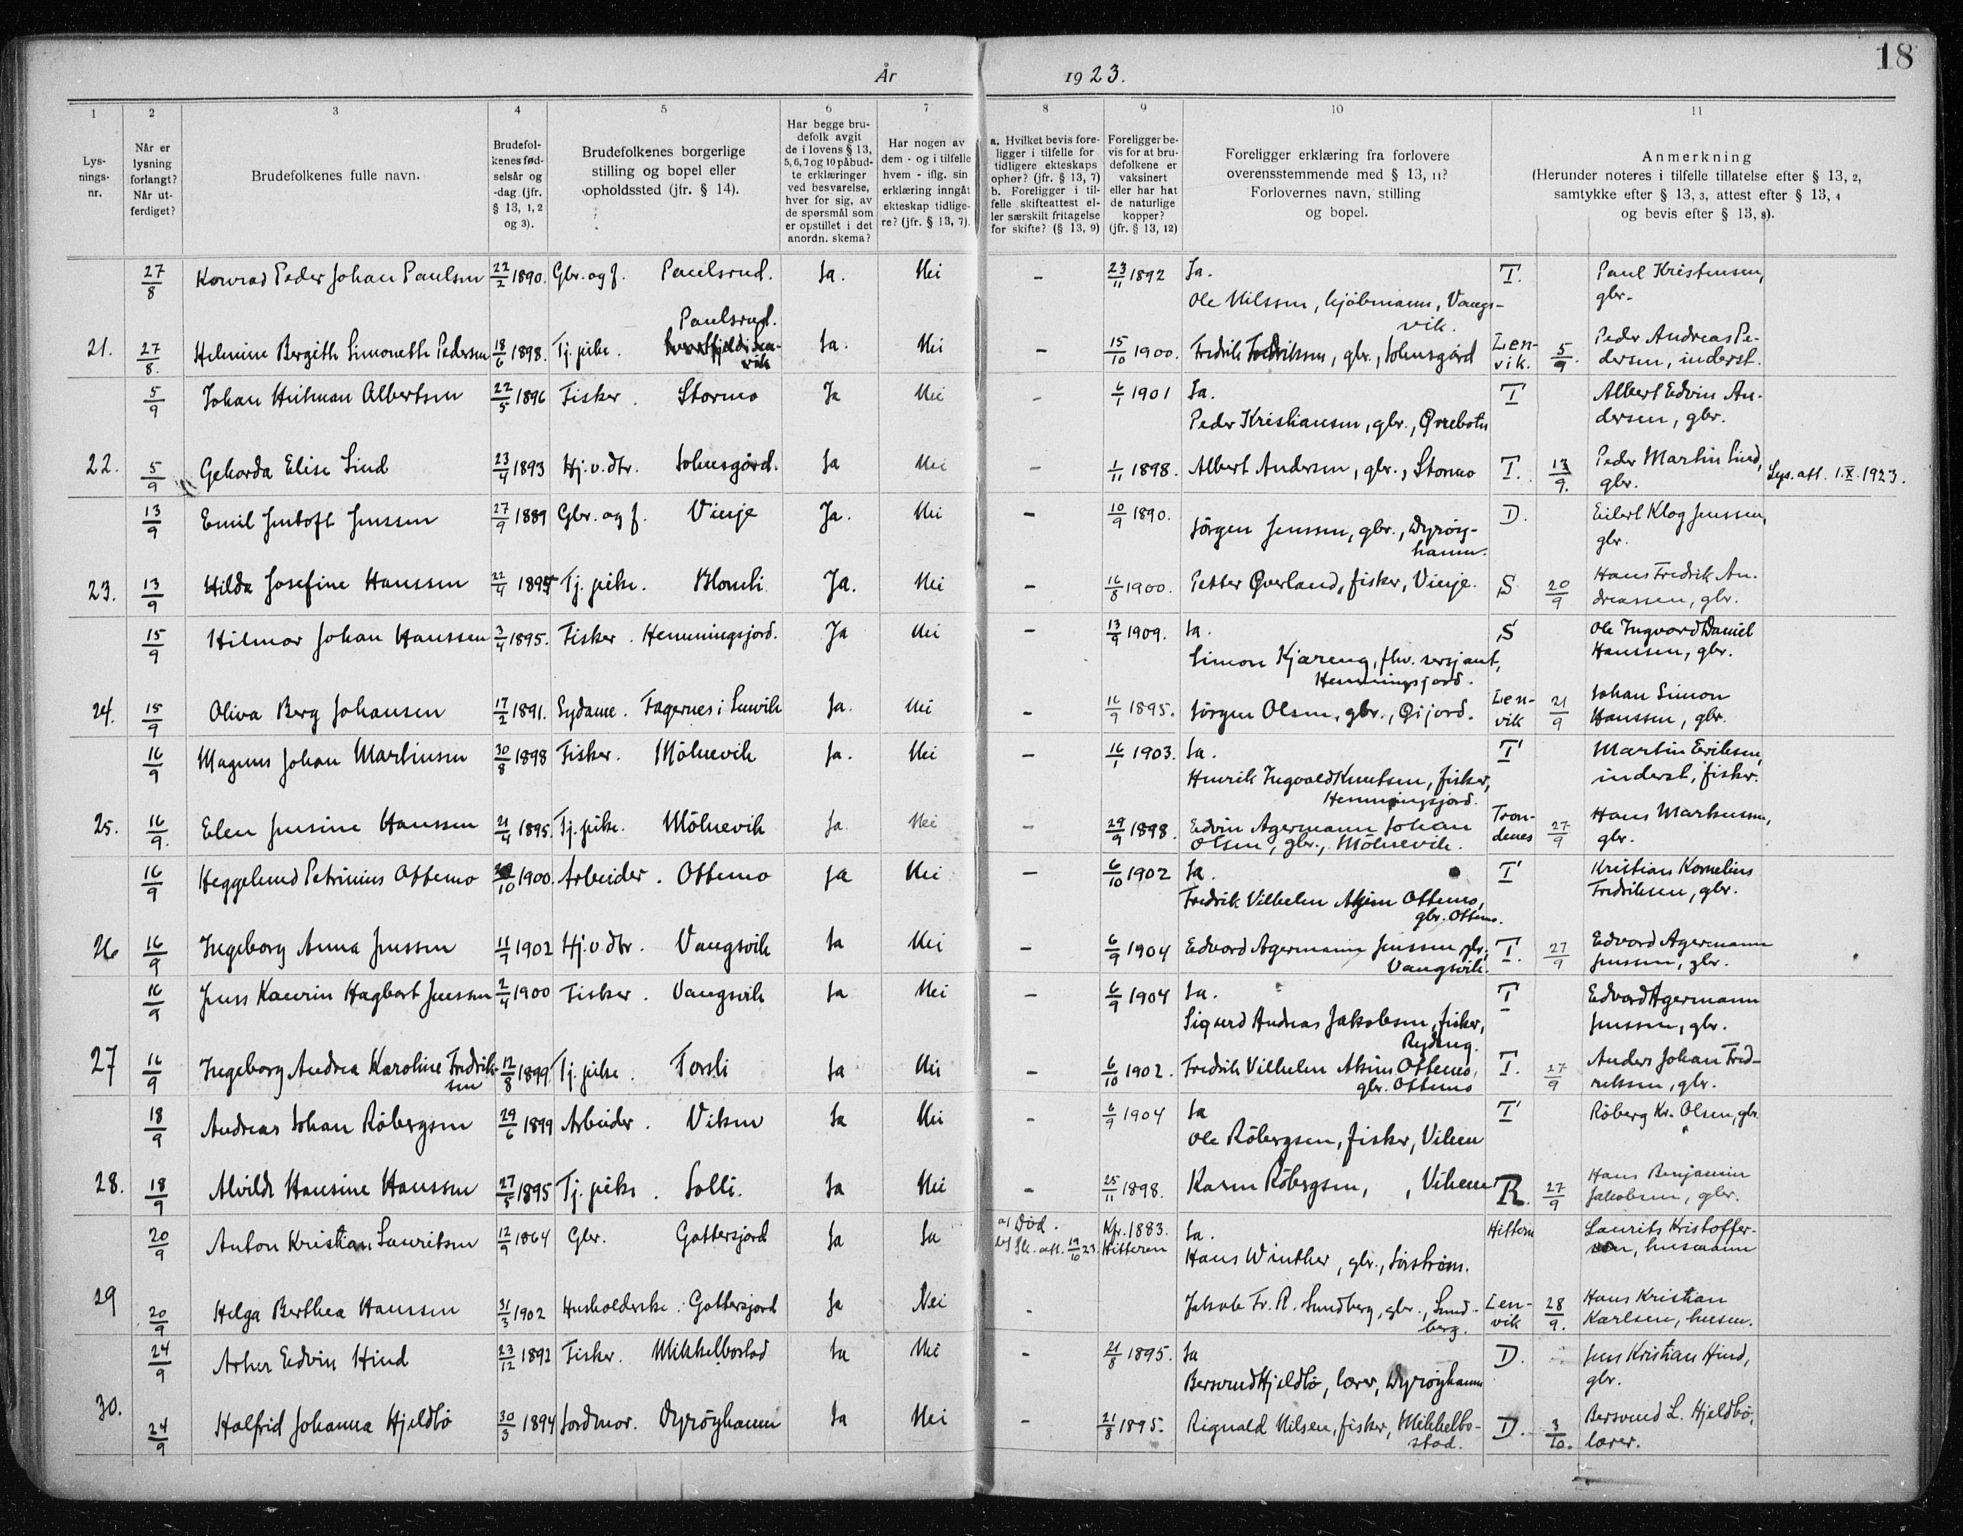 18
År 1923.
1 2 3 4 5 6 7 8 9 10 11
Lys-
nings-
nr.
Når er
lysning
forlangt?
Når ut-
ferdiget?
Brudefolkenes fulle navn.
Brudefol-
kenes fød-
selsår og
-dag (jfr.
§ 13, 1, 2
og 3).
Brudefolkenes borgerlige
stilling og bopel eller
opholdssted (jfr. § 14).
Har begge bru-
defolk avgit
de i lovens § 13,
5, 6, 7 og 10 påbud-
te erklæringer
ved besvarelse,
hver for sig, av
de spørsmål som
er opstillet i det
anordn. skema?
Har nogen av
dem - og i tilfelle
hvem - iflg. sin
erklæring inngåt
ekteskap tidlige-
re? (jfr. § 13, 7).
a. Hvilket bevis fore-
ligger i tilfelle for
tidligere ekteskaps
ophør? (jfr. § 13, 7)
b. Foreligger i til-
felle skifteattest el-
ler særskilt fritagelse
for skifte? (§ 13, 9)
Foreligger be-
vis for at bru-
defolkene er
vaksinert
eller har hat
de naturlige
kopper?
(jfr. § 13, 12)
Foreligger erklæring fra forlovere
overensstemmende med § 13, 11?
Forlovernes navn, stilling
og bopel.
Anmerkning
(Herunder noteres i tilfelle tillatelse efter § 13, 2,
samtykke efter § 13, 3, attest efter § 13, 4
og bevis efter § 13, 8).
27/8 Konrad Peder Johan Paulsen 22/2 1890. Gbr. og f. Paulsrud. Ja. Nei - 23/11 1892 Ja. T. Paul Kristensen,
gbr.
Ole Nilssen, kjøbmann, Vangs-
vik.
Paulsrud.
21. 27/8. Helmine Bergithe Simonette Pedersen 18/6 1898. Tj. pike. Ja. Nei - 15/10 1900. Fredrik Fredriksen, gbr., Solensgård Len-
vik. 5/9. Peder Andreas Pe-
dersen, inderst.
5/9 Johan Hilman Albertsen 22/5 1896 Fisker. Stormo Ja Nei - 6/1 1901 Ja. T Albert Edvin An-
dersen, gbr.
Peder Kristiansen, gbr., Ørrebotn
22. 5/9 Geharda Elise Lind 23/4 1893 Hj.v.dtr. Solensgård. Ja Nei - 1/11 1898. Albert Andersen, gbr., Stormo T. 13/9. Peder Martin Lind,
gbr. Lys.att. 1.X.1923.
13/9 Emil Jentoft Jenssen 27/9 1889 Gbr. og f. Vinje Ja. Nei - 10/9 1890. D. Eilert Klog Jenssen,
gbr.
Jørgen Jenssen, gbr., Dyrøy-
hamn.
23. 13/9 Hilda Josefine Hanssen 22/4 1895 Tj. pike. Blomli Ja. Nei - 16/8 1900. Petter Øverland, fisker, Vinje. S 20/9 Hans Fredrik An-
dreassen, gbr.
15/9 Hilmar Johan Hanssen 3/4 1895. Fisker. Hemmingsjord. Ja Nei - 13/9 1909. Ja. S Ole Ingvard Daniel
Hanssen, gbr.
Simon Kjæreng, fhv. sersjant,
Hemmingsjord.
24. 15/9 Oliva Berg Johansen 17/2 1891. Sydame. Fagernes i Lenvik Ja. Nei - 16/9 1895. Jørgen Olsen, gbr., Gijord. Len-
vik 21/9 Johan Simon
Hanssen, gbr.
16/9 Magnus Johan Martinsen 30/8 1898 Fisker. Mølnevik Ja. Nei - 16/1 1903. Ja. T Martin Eriksen,
inderst, fisker.
Henrik Ingvald Knutsen, fisker,
Hemmingsjord.
25. 16/9. Elen Jensine Hanssen 21/4 1895. Tj. pike. Mølnevik Ja Nei - 29/9 1898. Edvin Agermann Johan
Olsen, gbr., Mølnevik. Tron-
denes 27/9 Hans Markussen,
gbr.
16/9 Heggelund Petrinius Ottemo /10 1900. Arbeider. Ottemo Ja Nei - 6/10 1902 Ja. T Kristian Kornelius
Fredriksen, gbr.
Fredrik Vilhelm Akim Ottemo,
gbr. Ottemo.
26 16/9 Ingeborg Anna Jenssen 11/7 1902 Hj.v.dtr. Vangsvik Ja Nei - 6/9 1904 Edvard Agermann Jenssen gbr,
Vangsvik. T. 27/9 Edvard Agermann
Jenssen, gbr.
16/9 Jens Kaurin Hagbart Jenssen 2/4 1900 Fisker. Vangsvik Ja Nei - 6/9 1904 Ja. T Edvard Agermann
Jenssen, gbr.
Sigurd Andreas Jakobsen, fisker,
Rydeng.
27 16/9 Ingeborg Andrea Karoline Fredrik-
sen 12/8 1899. Tj. pike. Forsli Ja Nei - 6/10 1902. Fredrik Vilhelm Akim Ottemo,
gbr. Ottemo T. 27/9 Anders Johan Fred-
riksen, gbr.
18/9 Andreas Johan Røbergsen 29/6 1899 Arbeider. Viken Ja Nei - 6/9 1904 Ja T Røberg Kr. Olsen, gbr.
Ole Røbergsen, fisker, Viken
28. 18/9 Alvilde Hansine Hanssen 27/5 1895 Tj. pike. Solli. Ja Nei - 25/11 1898. Karen Røbergsen, , Viken R. 27/9 Hans Benjamin
Jakobsen, gbr.
20/9 Anton Kristian Lauritsen 12/9 1864 Gbr. Gottersjord Ja Ja a) Død.
b) Sk. att. 19/10 23. Kfr. 1883.
Hitteren Ja. Hitteren Laurits Kristoffer-
sen, husmann
Hans Winther, gbr., Sørstrøm.
29 20/9 Helga Berthea Hanssen 31/3 1902 Husholderske. Gottersjord Ja Nei - Jakob Fr. R. Sundberg, gbr., Sund-
berg. Len-
vik 28/9. Hans Kristian
Karlsen, husm.
24/9 Arher Edvin Hind 23/12 1892 Fisker. Mikkelbostad Ja Nei - 21/8 1895. Ja D. Jens Kristian Hind,
gbr.
Bersvend Hjeldbø, lærer, Dyrøyhamn
30. 24/9 Halfrid Johanna Hjeldbø 30/3 1894 Jordmor. Dyrøyhamn Ja Nei - 21/8 1895. Rignald Nilsen, fisker, Mikkelbo-
stad. D. 3/10. Bersvend L. Hjeldbø,
lærer.